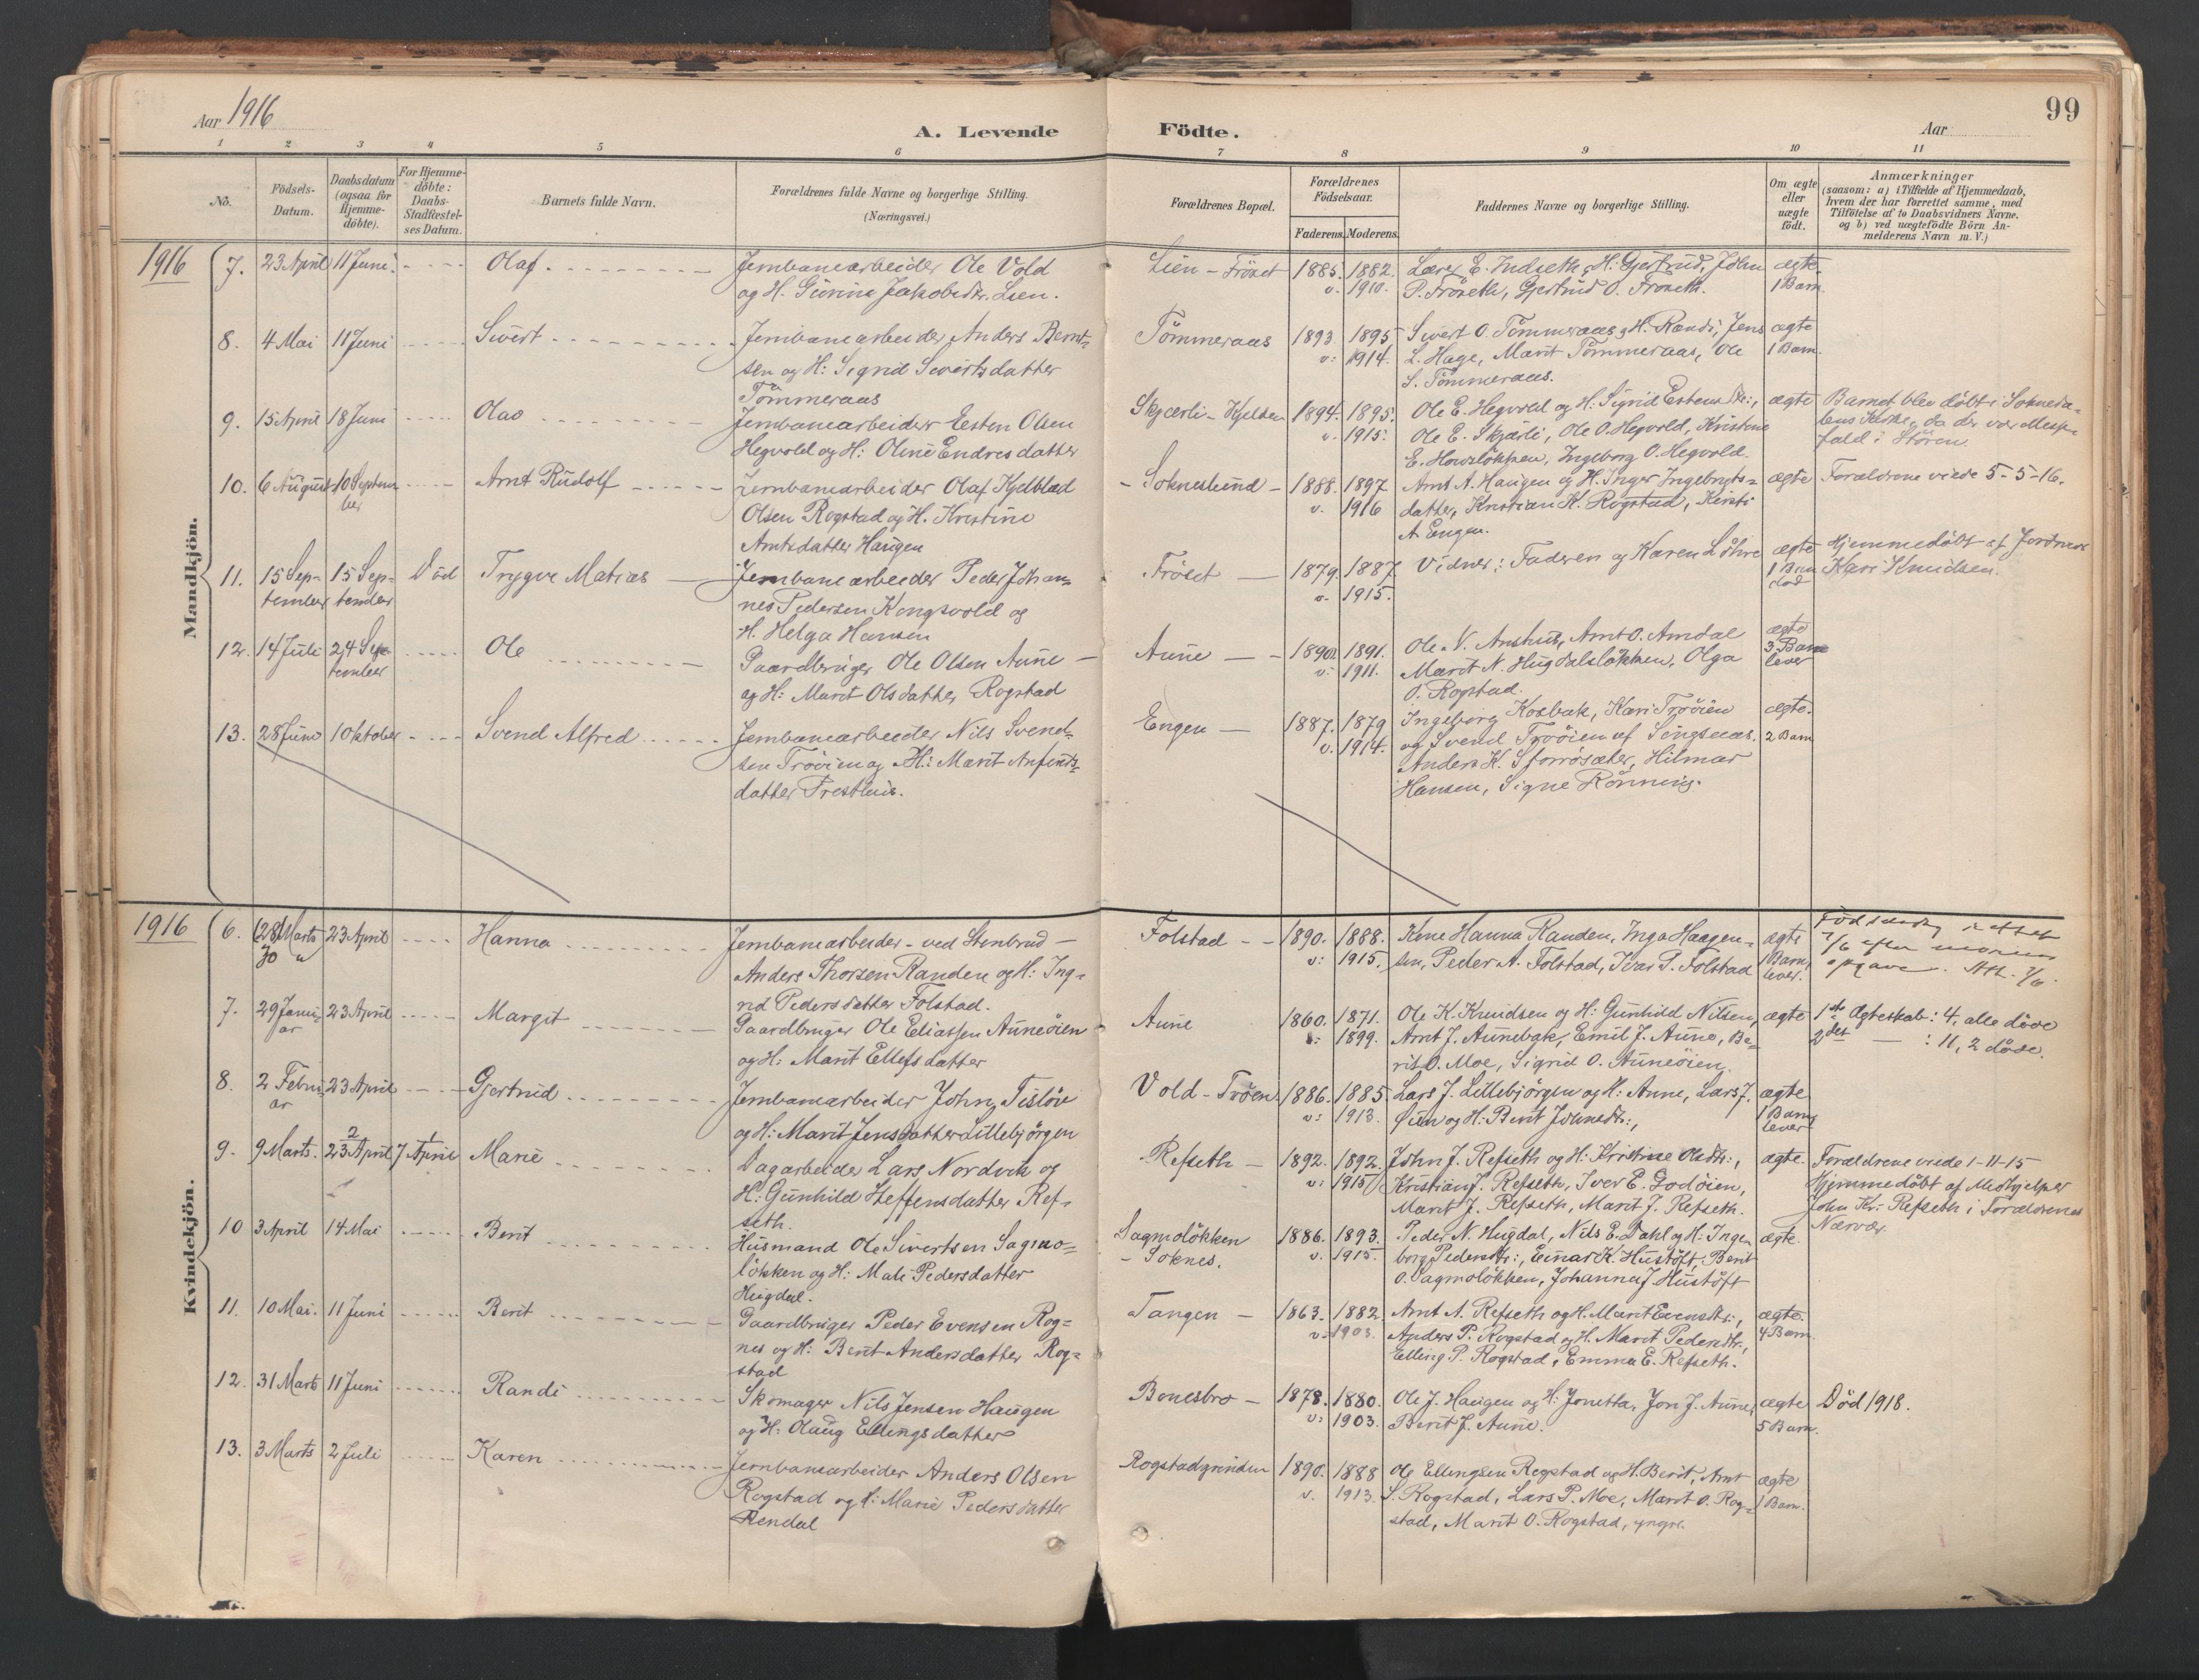 Aar 1916
A. Levende Födte.
Aar
99
1 2 3 4 5 6 7 8 9 10 11
No.
Födsels-Datum.
Daabsdatum (ogsaa for Hjemme-döbte).
For Hjemme-döbte: Daabs-Stadfæstel-ses Datum.
Barnets fulde Navn.
Forældrenes fulde Navne og borgerlige Stilling. (Næringsvei.)
Forældrenes Bopæl.
Forældrenes Födselsaar.
Faderens. Moderens.
Faddernes Navne og borgerlige Stilling.
Om ægte eller uægte födt.
Anmærkninger (saasom: a) i Tilfælde af Hjemmedaab, hvem der har forrettet samme, med Tilföielse af to Daabsvidners Navne, og b) ved uægtefödte Börn An-melderens Navn m. V.)
Mandkjön.
1916 7. 23 April 11 Juni Olaf Jernbanearbeider Ole Vold Lien - Fröset 1885. 1882. Lærer E. Indseth & H: Gjertrud, John ægte
og H. Gurine Jakobsdr. Lien. v. 1910. P. Fröseth, Gjertrud O. Fröseth. 1 Barn.
8. 4 Mai 11 Juni Sivert Jernbanearbeider Anders Bernt- Tömmeraas 1893 1895 Sivert O. Tömmeraas, H. Randi, Jens ægte
sen og H: Sigrid Sivertsdatter v: 1914. L. Hage, Marit Tömmeraas, Ole 1 Barn.
Tömmeraas S. Tömmeraas.
9. 15 April 18 Juni Olav Jernbanearbeider Esten Olsen Skjærli - 1894. 1895. Ole E. Hegvold og H: Sigrid Estensdr:, ægte Barnet blev döbt i Sokneda-
Hegvold og H: Oline Endresdatter v. 1915. Ole E. Skjærli, Ole O. Hegvold, Kristine lens Kirke, da der var Messe-
E. Hovslökken, Ingeborg O. Hegvold. fald i Stören.
10. 6 August 10 Septem- Arnt Rudolf Jernbanearbeider Olaf Kjelblad - Sokneslund - 1888. 1897 Arnt A. Haugen og H. Inger Ingebrigts- ægte Forældrene viede 5-5-16.
ber Olsen Rogstad og H. Kristine v. 1916 datter, Kristian K. Rogstad, Kirsti
Arntsdatter Haugen A. Engen.
11. 15 Sep- 15 Sep- Död Trygve Matias Jernbanearbeider Peder Johan- Fröset 1879. 1887. Vidner: Faderen og Karen Löhre ægte Hjemmedöbt af Jordmor
tember tember nes Pedersen Kongsvold og v. 1915. 1 Barn Kari Knudsen.
H. Helga Hansen död
12. 14 Juli 24 Sep- Ole Gaardbruger Ole Olsen Aune Aune 1890. 1891. Ole N. Arnt O. Amdal ægte
tember og H: Marit Olsdatter Rogstad v: 1911. Marit N. Hugdalslökken, Olga 3 Barn
O. Rogstad. lever
13. 28 Juni 1 Oktober Svend Alfred Jernbanearbeider Nils Svend- Engen 1887. 1879 Ingeborg Kosbak, Kari Trööien ægte.
sen Trööien og H: Marit Anfinds- v. 1914. og Svend Trööien af Singsaas. 2 Barn
datter Presthus. Anders K. Hilmar
Hansen, Signe Rönning.
Kvindekjön.
1916 6. (28) Marts 23 April Hanna Jernbanearbeider - ved Stenbrud - Folstad 1890. 1888. Hanna Randen, Inga Haagen- ægte Födselsdag rettet
30 " Anders Thorsen Randen og H: Ing- v: 1915. sen, Peder A. Folstad, Ivar P. Folstad 1 Barn, 7/6 efter morens
rid Pedersdatter Folstad. lever. opgave. 7/6.
7. 29 Janu- 23 April Margit Gaardbruger Ole Eliassen Auneöien Aune 1860. 1871. Ole K. Knudsen og H: Gunhild Nilsen, ægte 1ste Ægteskab: 4, alle döde
ar og H: Marit Ellefsdatter v: 1899. Arnt J. Aunebak, Emil J. Aune, Be- 2det — : 11, 2 döde.
rit O. Moe, Sigrid O. Auneöien.
8. 2 Febru- 23 April Gjertrud Jernbanearbeider John Tislöv Vold - Tröen 1886. 1885 Lars J. Lillebjörgen og H: Anne, Lars J. ægte
ar og H: Marit Jensdatter Lillebjörgen v: 1913. Öien og H: Berit Johnsdr:, 1 Barn, lever
9. 9 Marts. 23 April 7 April Marie Dagarbeider Lars Nordvik og Refseth 1892. 1892. John J. Refseth og H: Kristine Olsdtr:, ægte. Forældrene viede 1-11-15
2 1 H: Gunhild Steffensdatter Ref- v: 1915 Kristian J. Refseth, Iver E. Godöien, Hjemmedöbt af Medhjelper
seth. Marit J. Refseth, Marit J. Refseth. John Kr. Refseth i Forældrenes
Nærvær.
10 3 April 14 Mai Berit Husmand Ole Sivertsen Sagmo- Sagmolökken 1886. 1893. Peder N. Hugdal, Nils E. Dahl og H: Inge- ægte.
lökken og H: Mali Pedersdatter - Soknes. v. 1915. borg Pedersdtr:, Einar K. Hustöft, Berit
Hugdal. O. Sagmolökken, Johanna J. Hustöft
11. 10 Mai. 11 Juni Berit Gaardbruger Peder Evensen Rog- Tangen 1863. 1882 Arnt A. Refseth og H. Marit Evensdtr:, ægte.
nes og H: Berit Andersdatter Rog- v: 1903. Anders P. Rogstad og H. Marit Pedersdtr:, 4 Barn.
stad Elling P. Rogstad, Emma E. Refseth.
12. 31 Marts 11 Juni Randi Skomager Nils Jensen Haugen Bonesbro 1878. 1880. Ole J. Haugen og H: Jonetta, Jon J. Aune, ægte Död 1918.
og H: Olaug Ellingsdatter v: 1903. Berit J. Aune. 5 Barn.
13. 3 Marts 2 Juli Karen Jernbanearbeider Anders Olsen Rogstadgrinden 1890. 1888 Ole Ellingsen Rogstad og H. Berit, Arnt ægte
Rogstad og H: Marie Pedersdatter v. 1913. S. Rogstad, Lars P. Moe, Marit O. Rog- 1 Barn.
Rendal stad, Marit O. Rogstad, yngre.